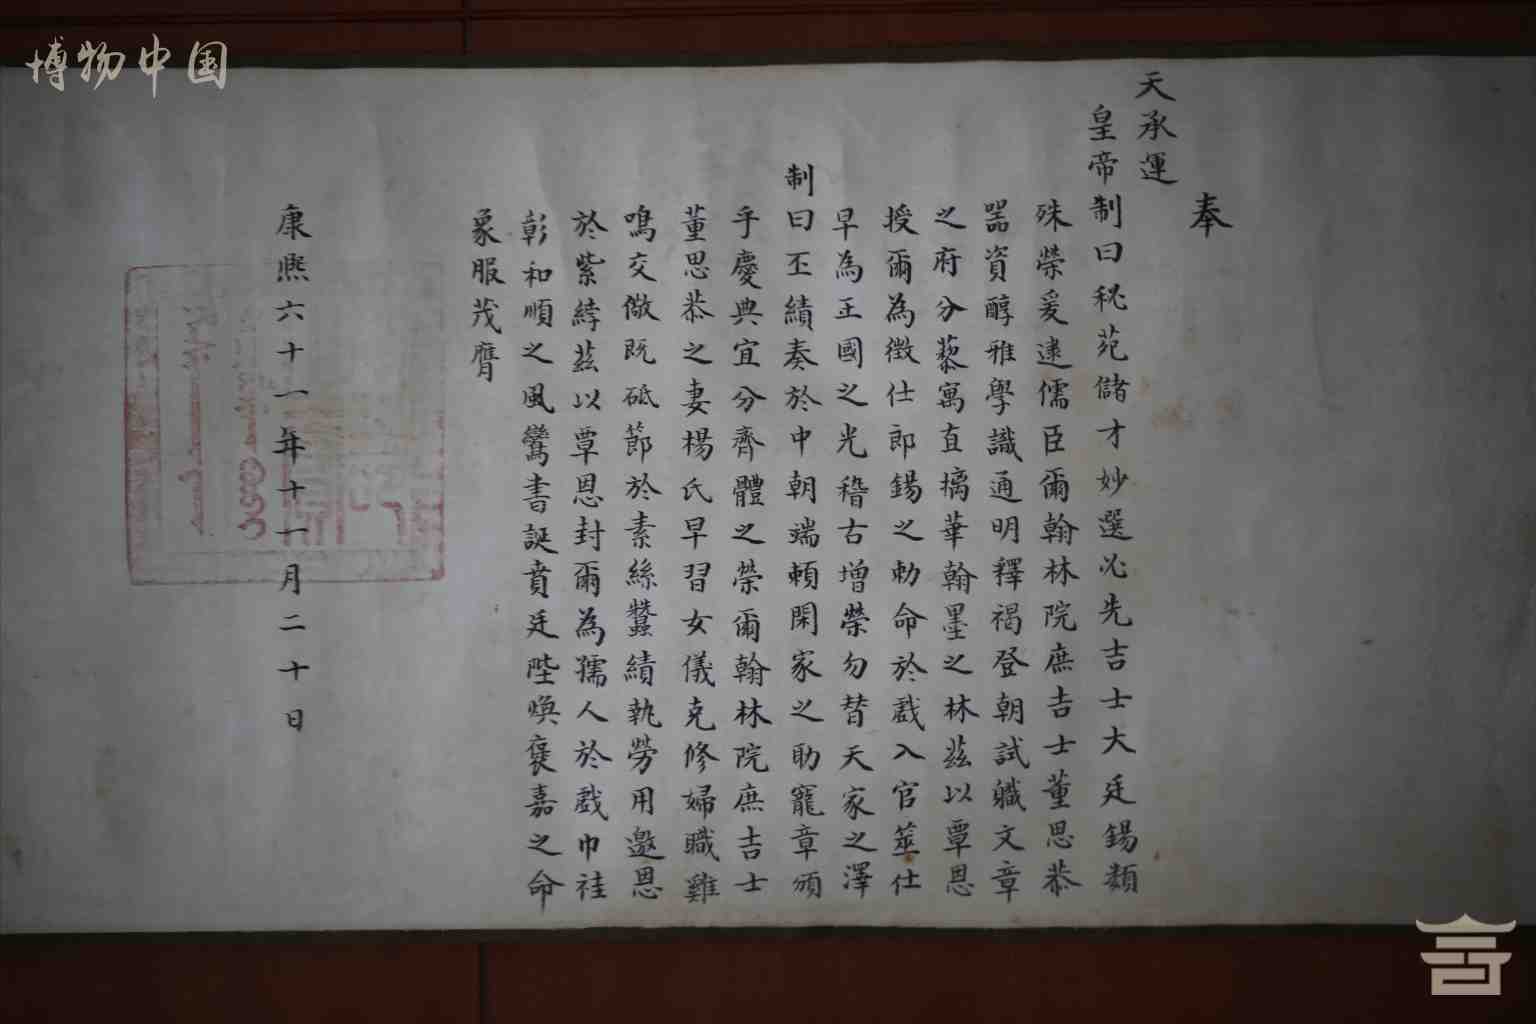 博物中国
奉
天承運
皇帝制曰秘苑儲才妙選必先吉士大廷錫類
殊榮爰逮儒臣爾翰林院庶吉士董思恭
器資醇雅學識通明釋褐登朝試職文章
之府分藜寓直摛華翰墨之林茲以覃恩
授爾為徵仕郎錫之勅命於戲入官筮仕
早為王國之光稽古增榮勿替天家之澤
制曰丕績奏於中朝端賴閑家之助寵章頒
乎慶典宜分齊體之榮爾翰林院庶吉士
董思恭之妻楊氏早習女儀克修婦職雞
鳴交儆既砥節於素絲蠶績執勞用邀恩
於紫綍茲以覃恩封爾為孺人於戲巾袿
彰和順之風鸞書誕賁廷陛煥褒嘉之命
象服茂膺
康熙六十一年十一月二十日